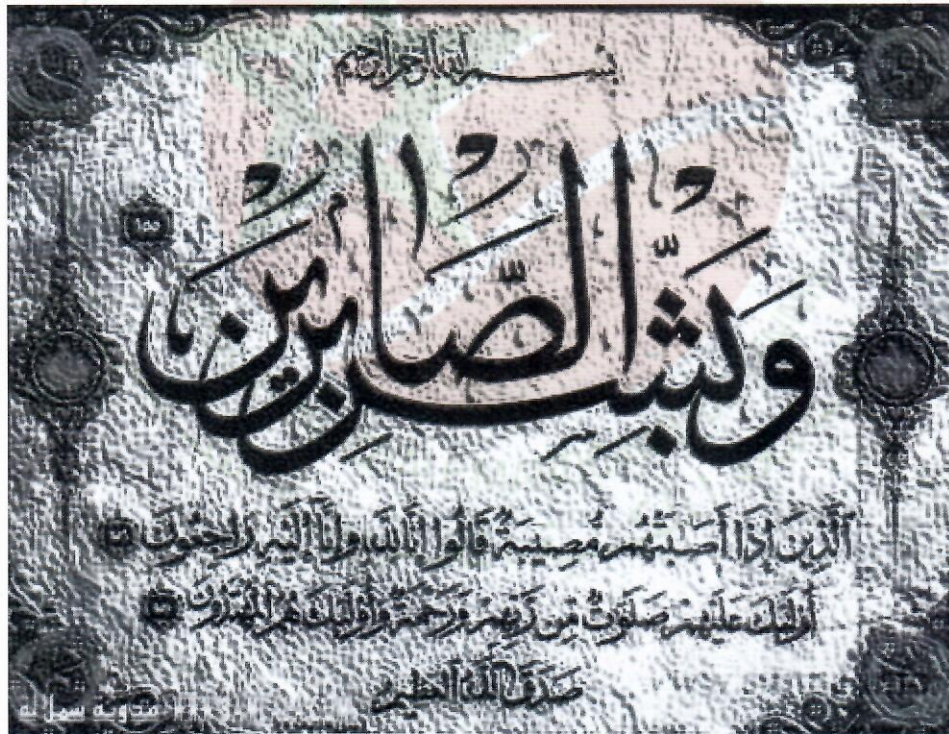 بسم الله الرحمن الرحيم
وَبَشِّرِ الصَّابِرِينَ ١٥٥
ٱلَّذِينَ إِذَآ أَصَٰبَتْهُم مُّصِيبَةٌ قَالُوٓا۟ إِنَّا لِلَّهِ وَإِنَّآ إِلَيْهِ رَٰجِعُونَ ١٥٦
أُو۟لَٰٓئِكَ عَلَيْهِمْ صَلَوَٰتٌ مِّن رَّبِّهِمْ وَرَحْمَةٌ وَأُو۟لَٰٓئِكَ هُمُ ٱلْمُهْتَدُونَ ١٥٧
صدق الله العظيم
مدونة سمالة